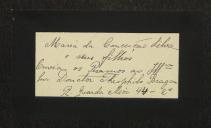 Maria da Conceição Silva
e seus filhos
Enviam os Pezames ao Illmo
Snr Doutor Theophilo Braga
R. Guarda Mór 44-2º